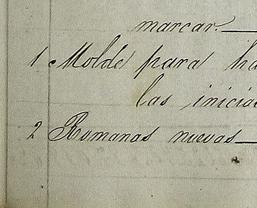 marcar.
1 Molde para ha
las inicia
2 Romanas nuevas